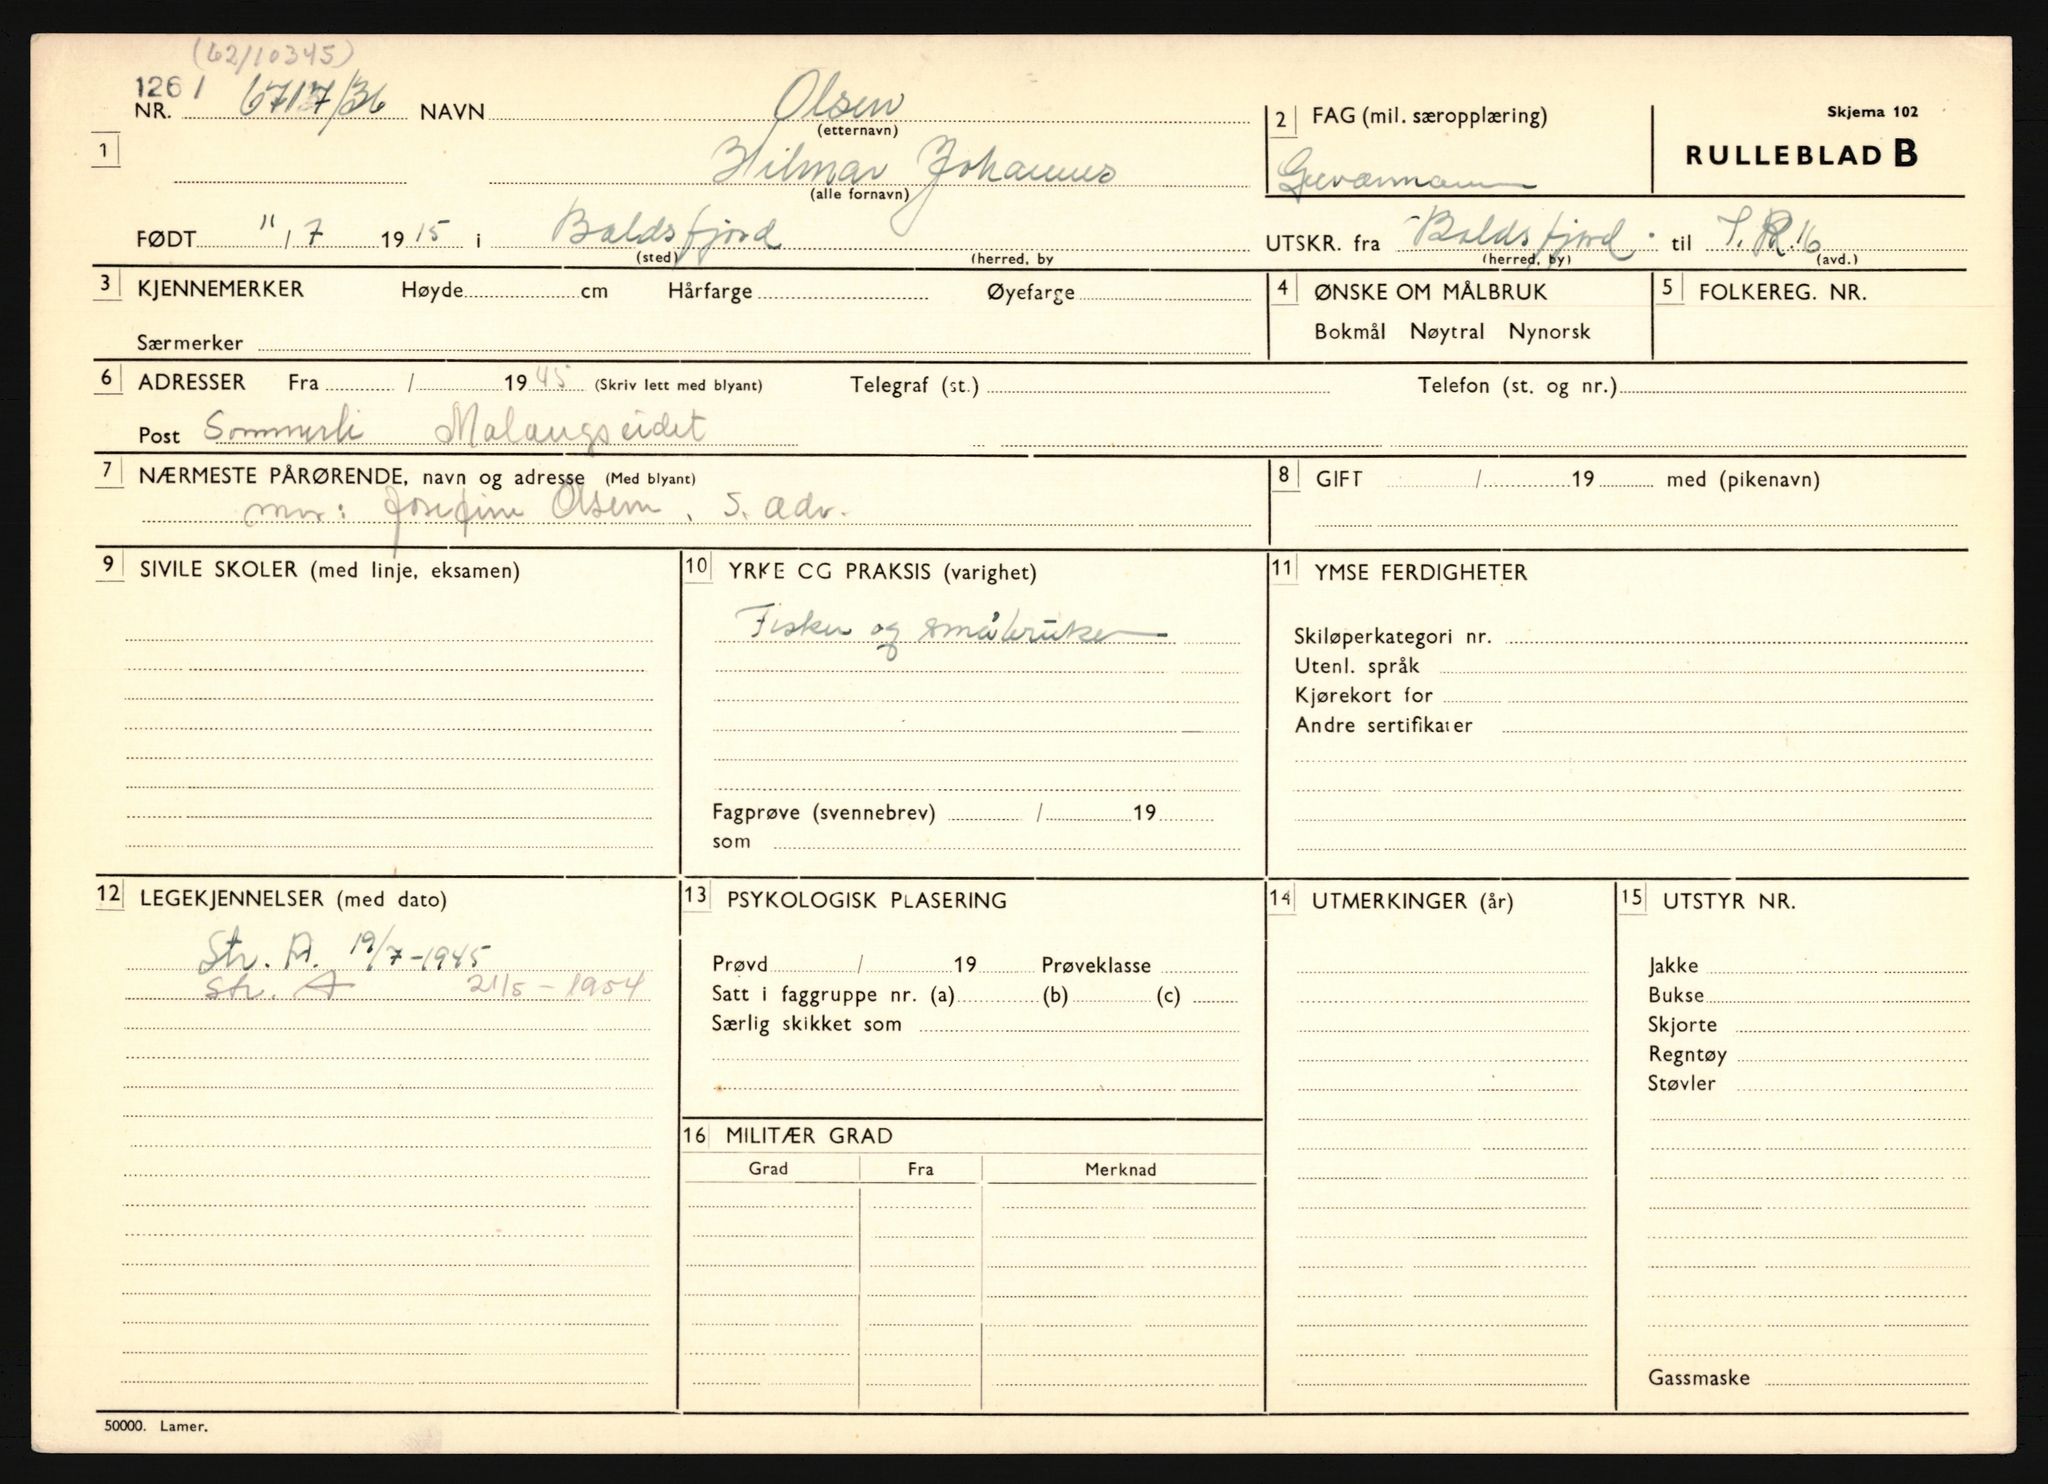 (62/10345)
1261
NR. 6717/36 NAVN Olsen
(etternavn)
2 FAG (mil. særopplæring)
Skjema 102
RULLEBLAD B
1
Hilmar Johannes
(alle fornavn)
Geværmann
FØDT 11/7 1915 i Balsfjord
(sted) (herred, by
UTSKR. fra Balsfjord. til I.R.16
(herred, by) (avd.)
3 KJENNEMERKER Høyde cm Hårfarge Øyefarge
Særmerker
4 ØNSKE OM MÅLBRUK
Bokmål Nøytral Nynorsk
5 FOLKEREG. NR.
6 ADRESSER Fra / 1945 (Skriv lett med blyant) Telegraf (st.) Telefon (st. og nr.)
Post Sommerli Malangseidet
7 NÆRMESTE PÅRØRENDE, navn og adresse (Med blyant)
mor: Josefine Olsen, s. adr.
8 GIFT / 19 med (pikenavn)
9 SIVILE SKOLER (med linje, eksamen)
10 YRKE OG PRAKSIS (varighet)
Fisker og småbruker
Fagprøve (svennebrev) / 19
som
11 YMSE FERDIGHETER
Skiløperkategori nr.
Utenl. språk
Kjørekort for
Andre sertifikater
12 LEGEKJENNELSER (med dato)
Str. A. 19/7-1945
Str. A 21/5-1954
13 PSYKOLOGISK PLASERING
Prøvd / 19 Prøveklasse
Satt i faggruppe nr. (a) (b) (c)
Særlig skikket som
14 UTMERKINGER (år)
15 UTSTYR NR.
Jakke
Bukse
Skjorte
Regntøy
Støvler
Gassmaske
16 MILITÆR GRAD
Grad Fra Merknad
50000. Lamer.